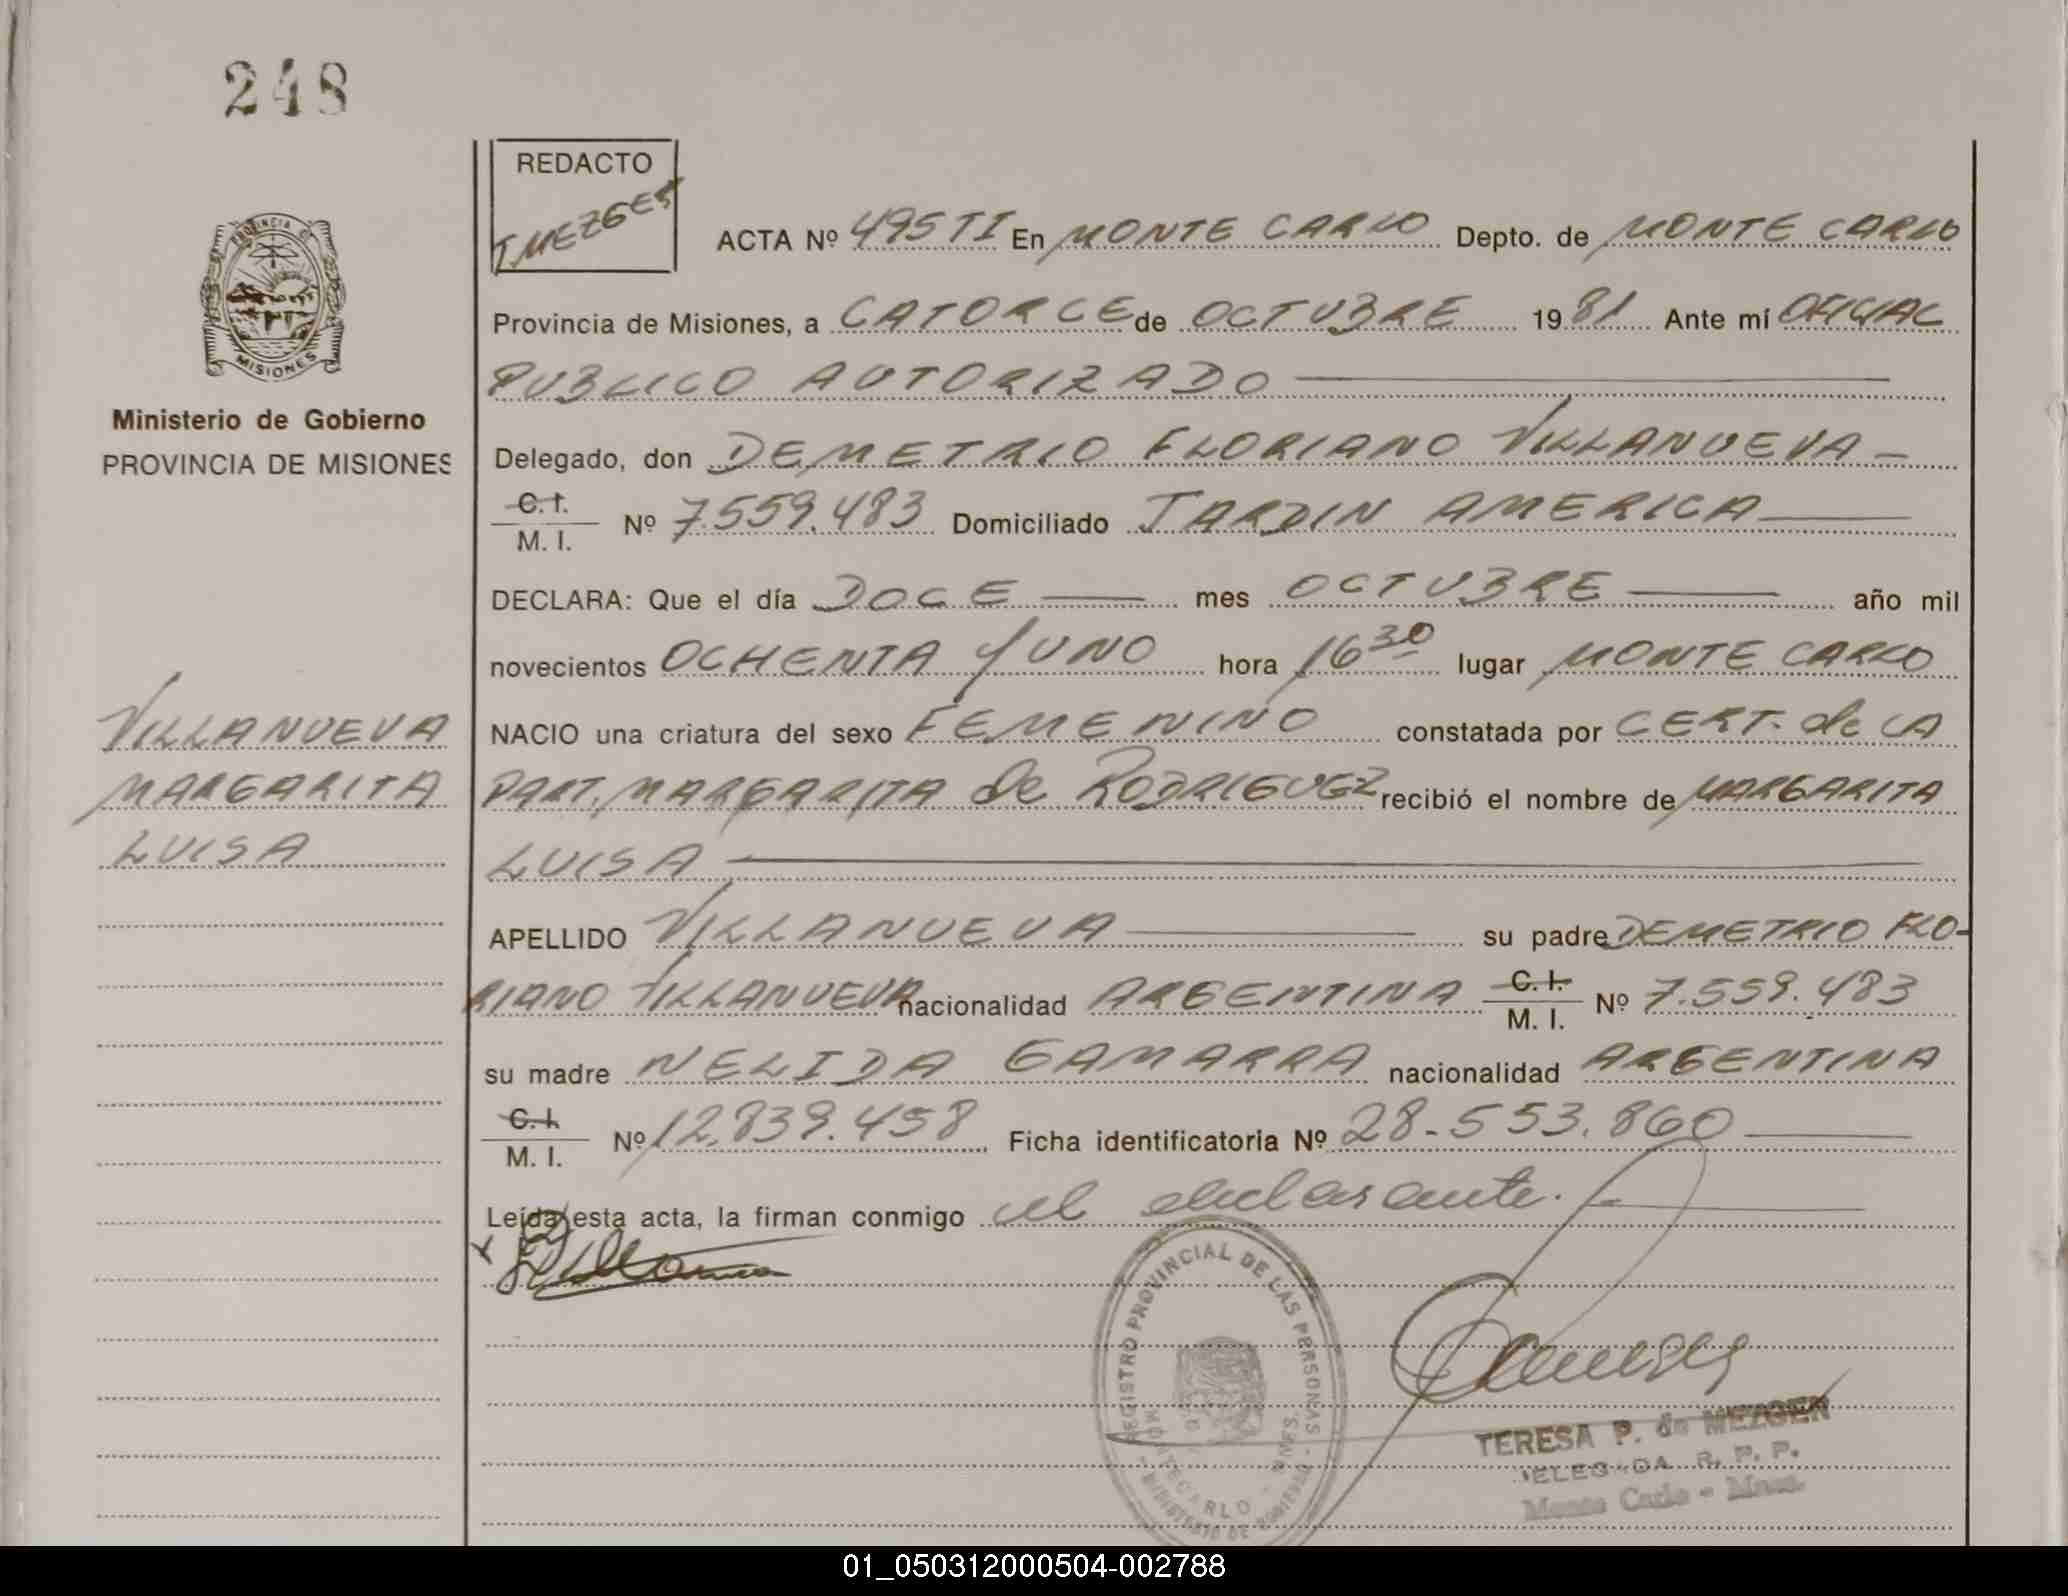 248
REDACTO
T. MEZGER
PROVINCIA DE
MISIONES
Ministerio de Gobierno
PROVINCIA DE MISIONES
ACTA Nº 495 TI En MONTE CARLO Depto. de MONTE CARLO
Provincia de Misiones, a CATORCE de OCTUBRE 1981 Ante mí OFICIAL
PUBLICO AUTORIZADO
Delegado, don DEMETRIO FLORIANO VILLANUEVA
C. I.
M. I. Nº 7.559.483 Domiciliado JARDIN AMERICA
DECLARA: Que el día DOCE mes OCTUBRE año mil
novecientos OCHENTA Y UNO hora 16 30 lugar MONTE CARLO
NACIO una criatura del sexo FEMENINO constatada por CERT. de LA
PART. MARGARITA de RODRIGUEZ recibió el nombre de MARGARITA
LUISA
APELLIDO VILLANUEVA su padre DEMETRIO FLO-
RIANO VILLANUEVA nacionalidad ARGENTINA C. I.
M. I. Nº 7.559.483
su madre NELIDA GAMARRA nacionalidad ARGENTINA
C. I.
M. I. Nº 12.839.458 Ficha identificatoria Nº 28-553.860
Leída esta acta, la firman conmigo el declarante.
VILLANUEVA
MARGARITA
LUISA
REGISTRO PROVINCIAL DE LAS PERSONAS
MONTECARLO - MNES.
MINISTERIO DE GOBIERNO
TERESA P. de MEZGER
DELEGADA R. P. P.
Monte Carlo - Mnes.
01_050312000504-002788